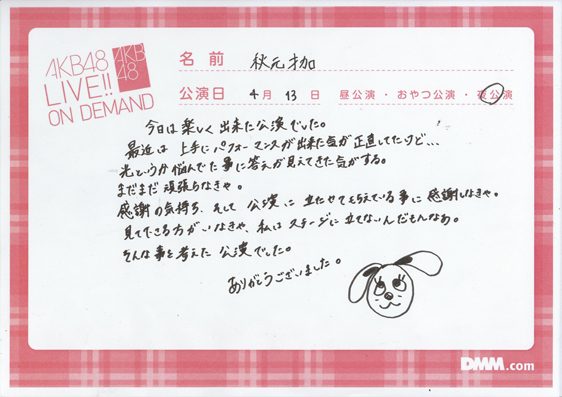 AKB48
LIVE!!
ON DEMAND
AKB
48
名前 秋元才加
公演日 4月 13日 昼公演・おやつ公演・夜公演
今日は楽しく出来た公演でした。
最近は上手にパフォーマンスが出来た気が正直してたけど…
光というか悩んでた事に答えが見えてきた気がする。
まだまだ頑張らなきゃ。
感謝の気持ち、そして公演に立たせてもらえている事に感謝しなきゃ。
見て下さる方がいなきゃ、私はステージに立てないんだもんなぁ。
そんな事を考えた公演でした。
ありがとうございました。
DMM.com